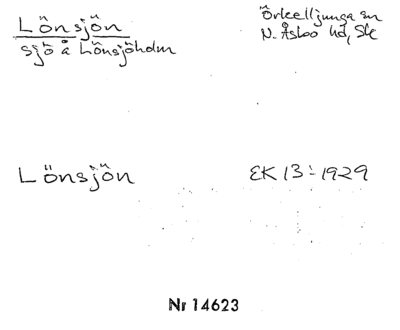 Lönsjön
sjö å Lönsjöholm
Örkelljunga sn
N. Åsbo hd, Sk
Lönsjön
EK 13:-1929
Nr 14623